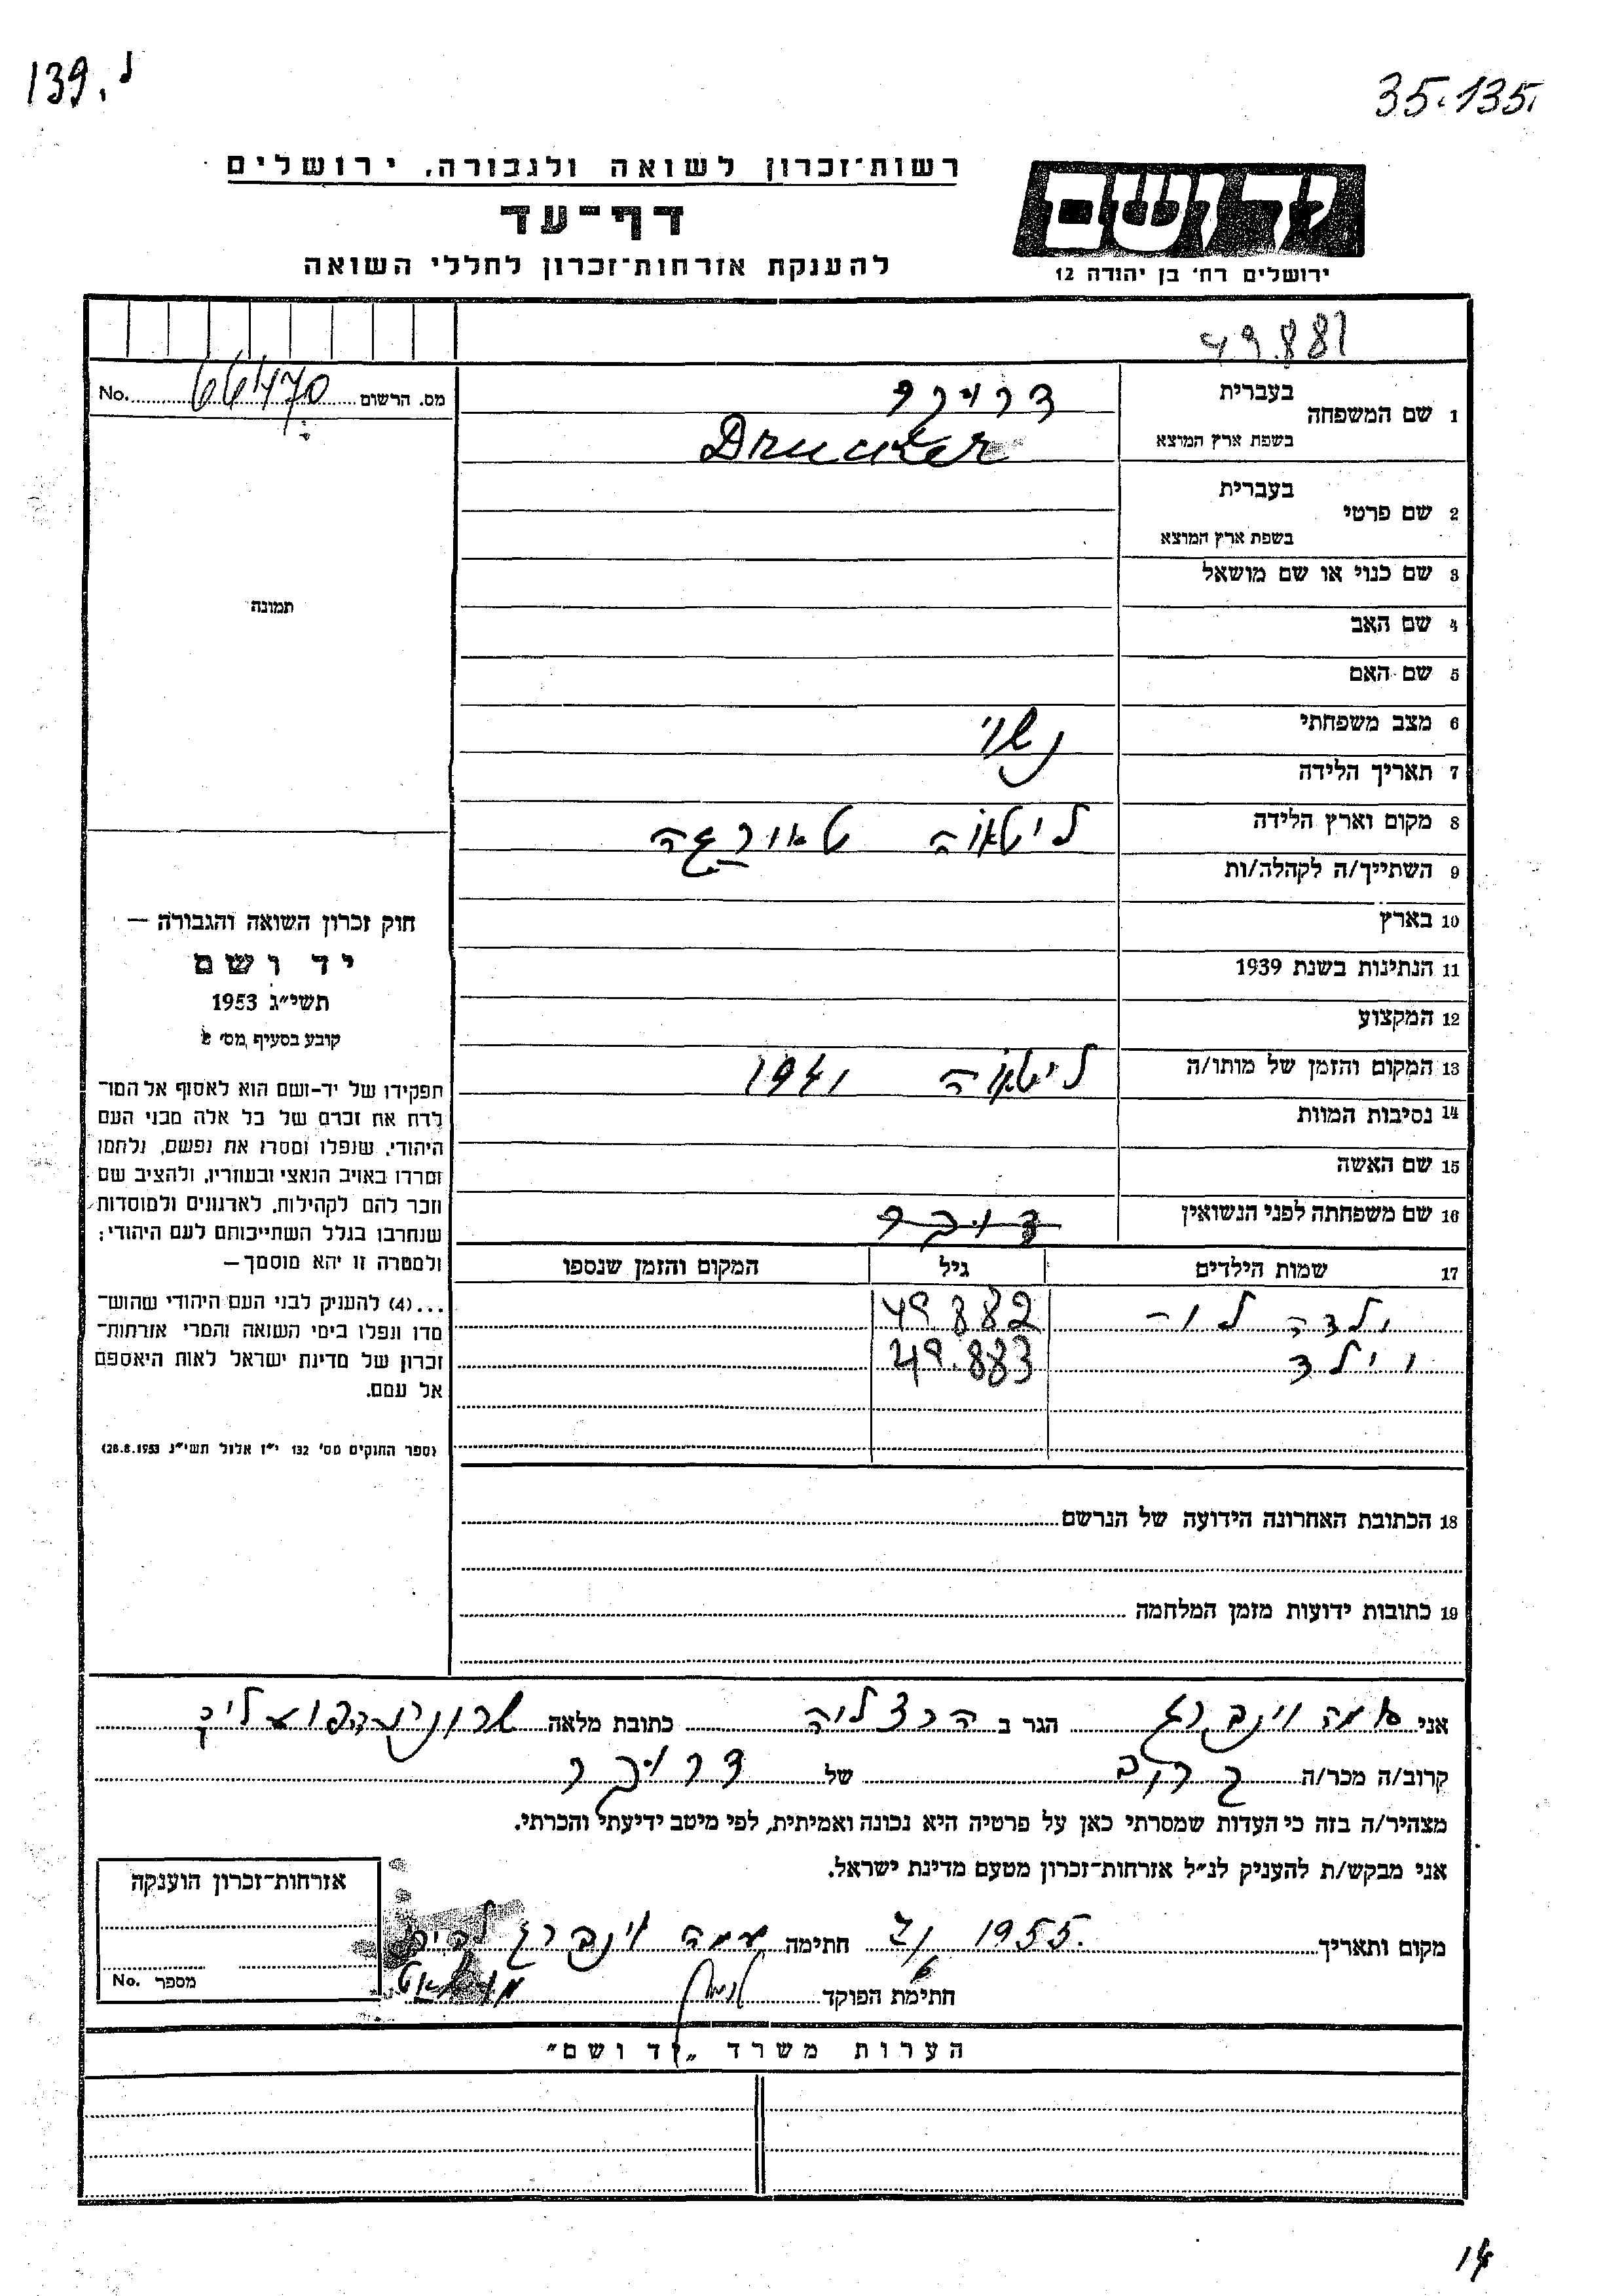 139. ל
35.135
רשות־זכרון לשואה ולגבורה, ירושלים
דף־עד
להענקת אזרחות־זכרון לחללי השואה
יד ושם
ירושלים רח׳ בן יהודה 12
49.881
מס. הרשום 66470 No.
1 שם המשפחה בעברית דרוקר
בשפת ארץ המוצא Drucker
2 שם פרטי בעברית
בשפת ארץ המוצא
3 שם כנוי או שם מושאל
תמונה
4 שם האב
5 שם האם
6 מצב משפחתי נשוי
7 תאריך הלידה
8 מקום וארץ הלידה ליטאה טאורגה
9 השתייך/ה לקהלה/ות
10 בארץ
11 הנתינות בשנת 1939
12 המקצוע
13 המקום והזמן של מותו/ה ליטאה 1941
14 נסיבות המוות
15 שם האשה
16 שם משפחתה לפני הנשואין
17 שמות הילדים גיל המקום והזמן שנספו
ילדה 49.882
וילד 49.883
חוק זכרון השואה והגבורה —
יד ושם
תשי״ג 1953
קובע בסעיף מס׳ 2
תפקידו של יד-ושם הוא לאסוף אל המו־
לדת את זכרם של כל אלה מבני העם
היהודי, שנפלו ומסרו את נפשם, נלחמו
ומרדו באויב הנאצי ובעוזריו, ולהציב שם
וזכר להם לקהילות, לארגונים ולמוסדות
שנחרבו בגלל השתייכותם לעם היהודי;
ולמטרה זו יהא מוסמך—
...(4) להעניק לבני העם היהודי שהוש־
מדו ונפלו בימי השואה והמרי אזרחות־
זכרון של מדינת ישראל לאות היאספם
אל עמם.
(ספר החוקים מס׳ 132 י״ז אלול תשי״ג 28.8.1953)
18 הכתובת האחרונה הידועה של הנרשם
19 כתובות ידועות מזמן המלחמה
אני וינברג הגר ב הרצליה כתובת מלאה
קרוב/ה מכר/ה קרוב של דרוקר
מצהיר/ה בזה כי העדות שמסרתי כאן על פרטיה היא נכונה ואמיתית, לפי מיטב ידיעתי והכרתי.
אני מבקש/ת להעניק לנ״ל אזרחות־זכרון מטעם מדינת ישראל.
מקום ותאריך 1955 חתימה וינברג
חתימת הפוקד
אזרחות־זכרון הוענקה
מספר No.
הערות משרד „יד ושם״
14